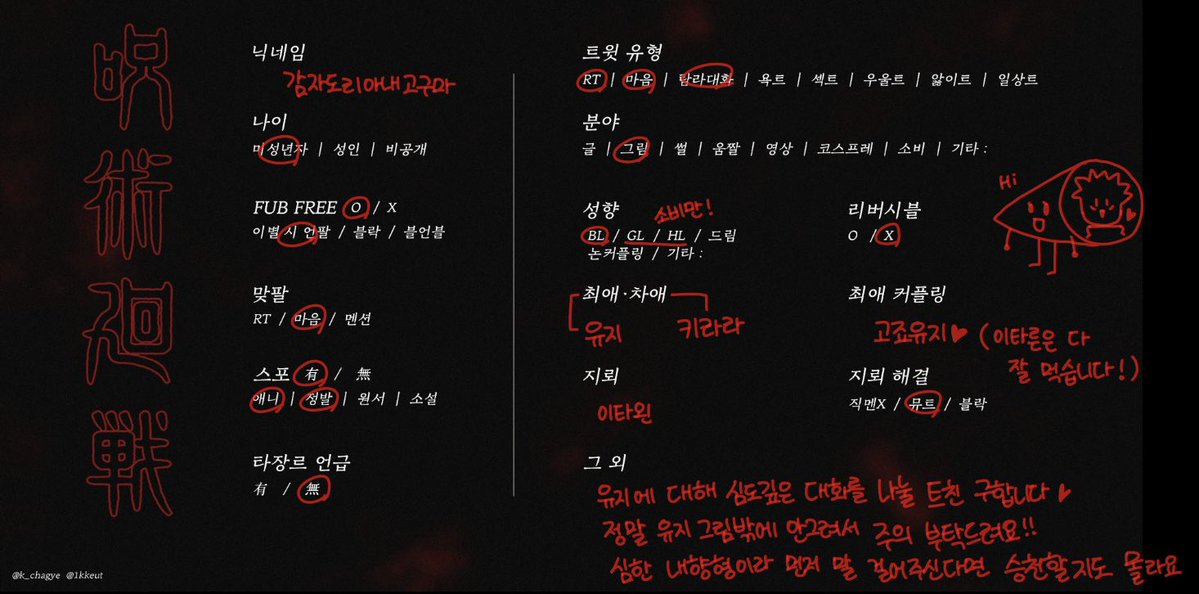 呪術廻戦
닉네임
감자도리아내고구마
나이
미성년자 | 성인 | 비공개
FUB FREE O / X
이별 시 언팔 / 블락 / 블언블
맞팔
RT / 마음 / 멘션
스포 有 / 無
애니 | 정발 | 원서 | 소설
타장르 언급
有 / 無
@k_chagye @1kkeut
트윗 유형
RT | 마음 | 탐라대화 | 욕트 | 섹트 | 우울트 | 앓이트 | 일상트
분야
글 | 그림 | 썰 | 움짤 | 영상 | 코스프레 | 소비 | 기타 :
Hi
성향
소비만!
BL / GL / HL / 드림
논커플링 / 기타 :
리버시블
O / X
최애·차애
유지 키라라
최애 커플링
고죠유지♥ (이타른은 다
잘 먹습니다!)
지뢰
이타왼
지뢰 해결
직멘X / 뮤트 / 블락
그 외
유지에 대해 심도깊은 대화를 나눌 트친 구합니다♥
정말 유지 그림밖에 안그려서 주의 부탁드려요!!
심한 내향형이라 먼저 말 걸어주신다면 승천할지도 몰라요